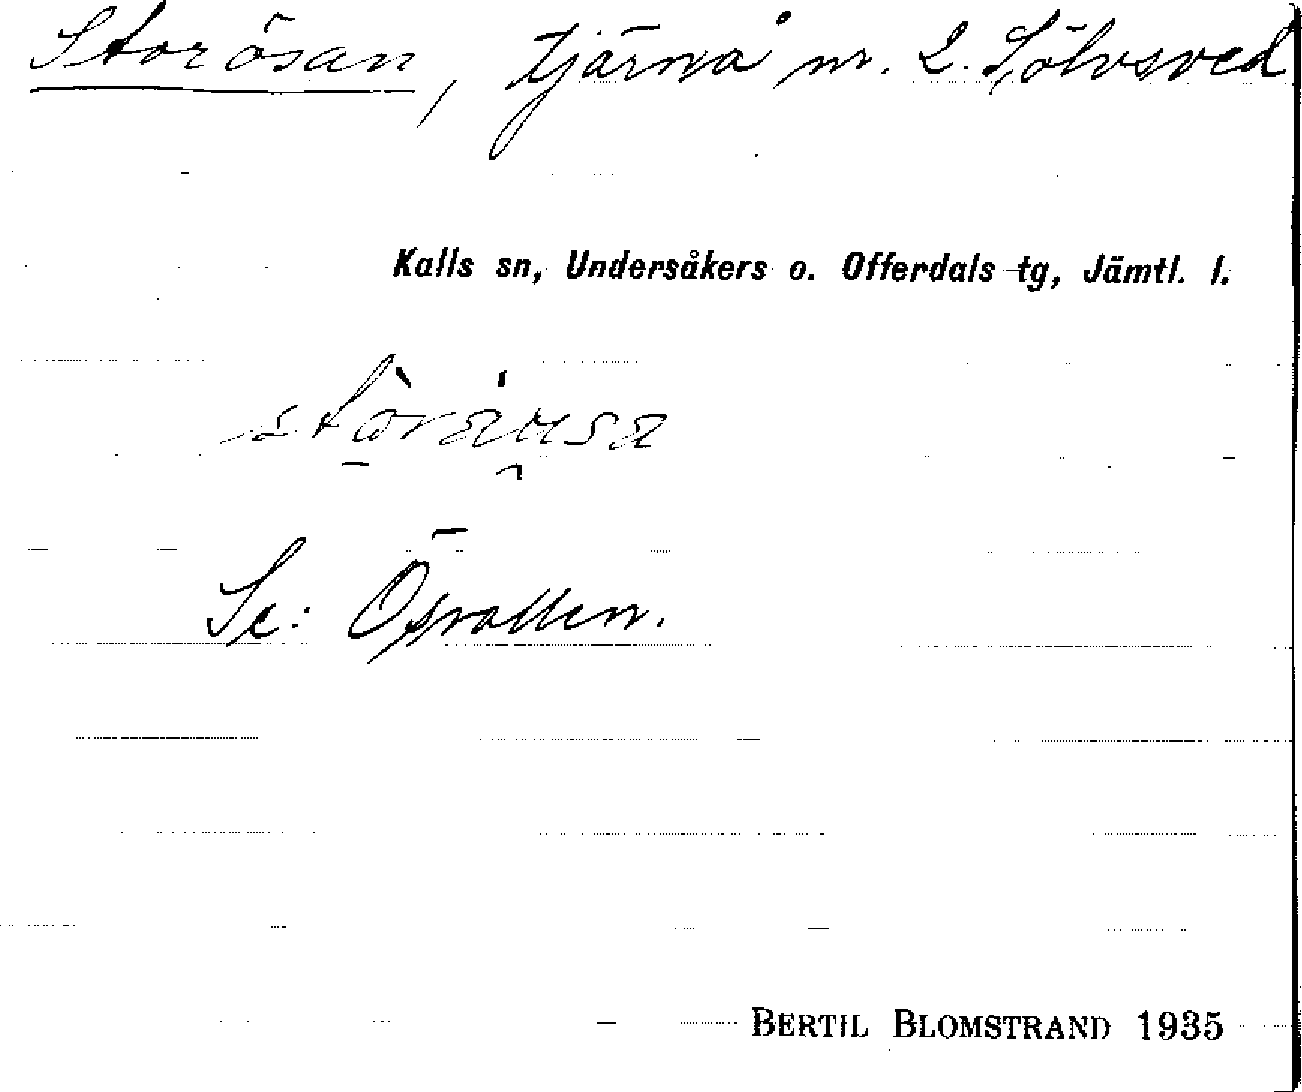 Storösan, tjärna nr. 2. Sölvsved
Kalls sn, Undersåkers o. Offerdals tg, Jämtl. l.
Se: Ösvallen.
BERTIL BLOMSTRAND 1935